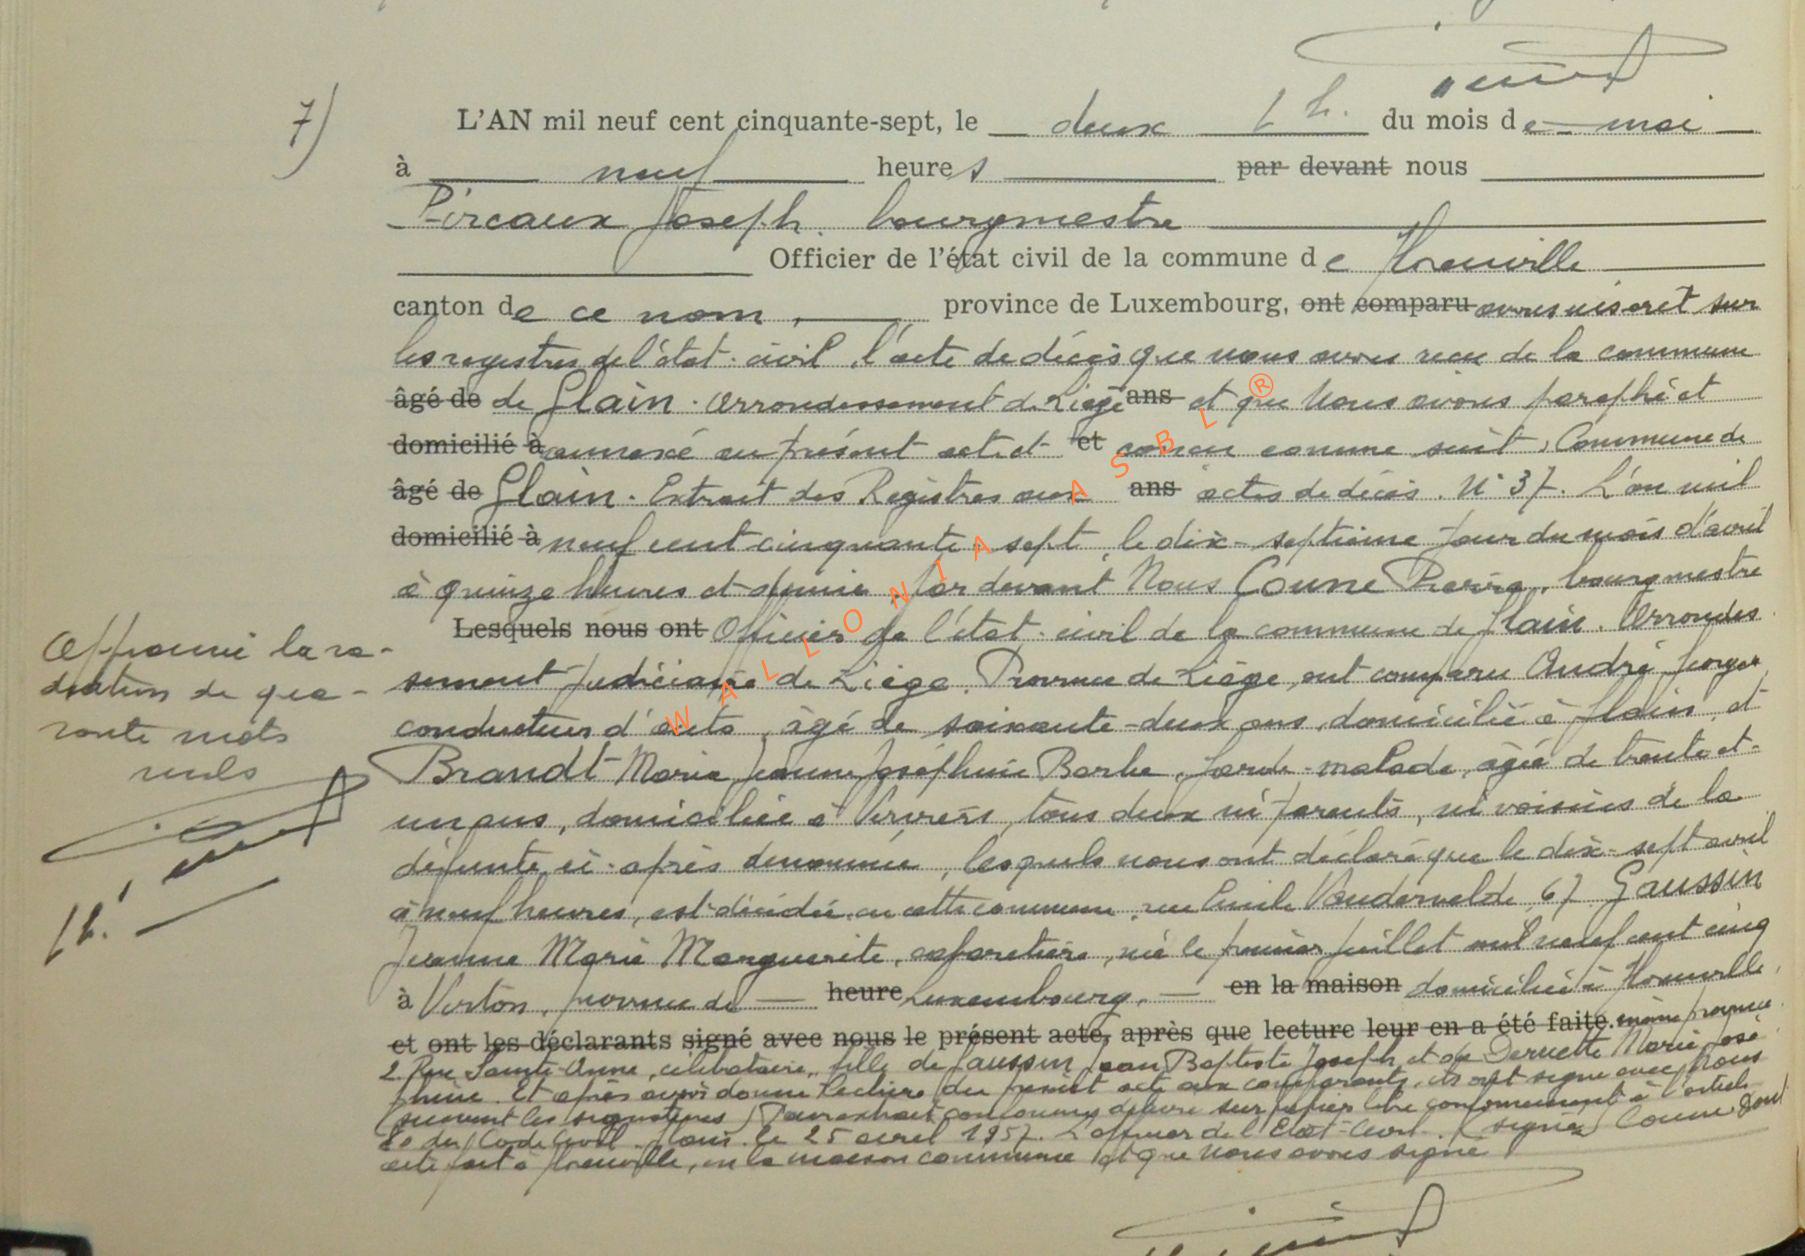 7)
L'AN mil neuf cent cinquante-sept, le deux du mois de mai
à neuf heures par devant nous
Pircaux Joseph, bourgmestre
Officier de l'état civil de la commune de
canton de ce nom, province de Luxembourg, ont comparu avons inscrit sur
les registres de l'état-civil, l'acte de décès que nous avons reçu de la commune
âgé de de Glain. Arrondissement de Liège ans et que Nous avons paraphé et
domicilié à annexé au présent acte et et conçu comme suit, Commune de
âgé de Glain. Extrait des Registres aux ans actes de décès. N° 37. L'an mil
domicilié à neuf cent cinquante-sept, le dix-septième jour du mois d'avril
à quinze heures et demie, par devant Nous Coune Pierre, bourgmestre
Lesquels nous ont Officier de l'état-civil de la commune de Glain. Arrondis
sement judiciaire de Liège, Province de Liège, ont comparu André
conducteur d'auto, âgé de soixante-deux ans, domicilié à Glain, et
Brandt Marie Jeanne Joséphine Barbe, garde-malade, âgée de trente et
un ans, domiciliée à Verviers, tous deux ni parents, ni voisins de la
défunte ci-après dénommée, lesquels nous ont déclaré que le dix-sept avril
à neuf heures, est décédée en cette commune, rue Emile Vandervelde 67 Gaussin
Jeanne Marie Marguerite, cabaretière, née le premier juillet mil neuf cent cinq
à Virton, province de heure Luxembourg, en la maison domiciliée à
et ont les déclarants signé avec nous le présent acte, après que lecture leur en a été faite. même province
2 Rue Sainte-Anne, célibataire, fille de Gaussin Jean Baptiste Joseph, et de Marie José
phine. Et après avoir donné lecture du présent acte aux comparants, ils ont signé avec Nous
(suivent les signatures) Pour extrait conforme délivré sur papier libre conformément à l'article
80 du Code Civil. Glain le 25 avril 1957. L'officier de l'Etat-Civil. (signé) Coune Dont
acte fait à en la maison commune et que Nous avons signé
Approuvé la ra-
diation de qua-
rante mots
nuls
WALLONIA ASBL ®